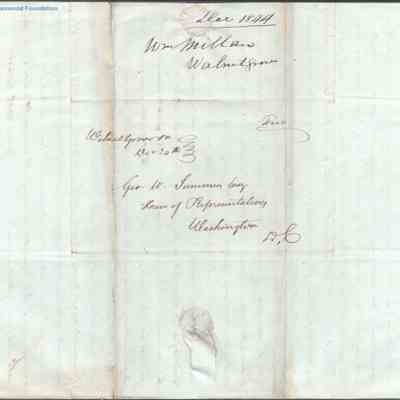 Dec 1844
Wm Millan
Walnutgrove
Free
Walnut Grove Va
Dec 20th
Geo W. Summers Esq
House of Representatives
Washington
D, C